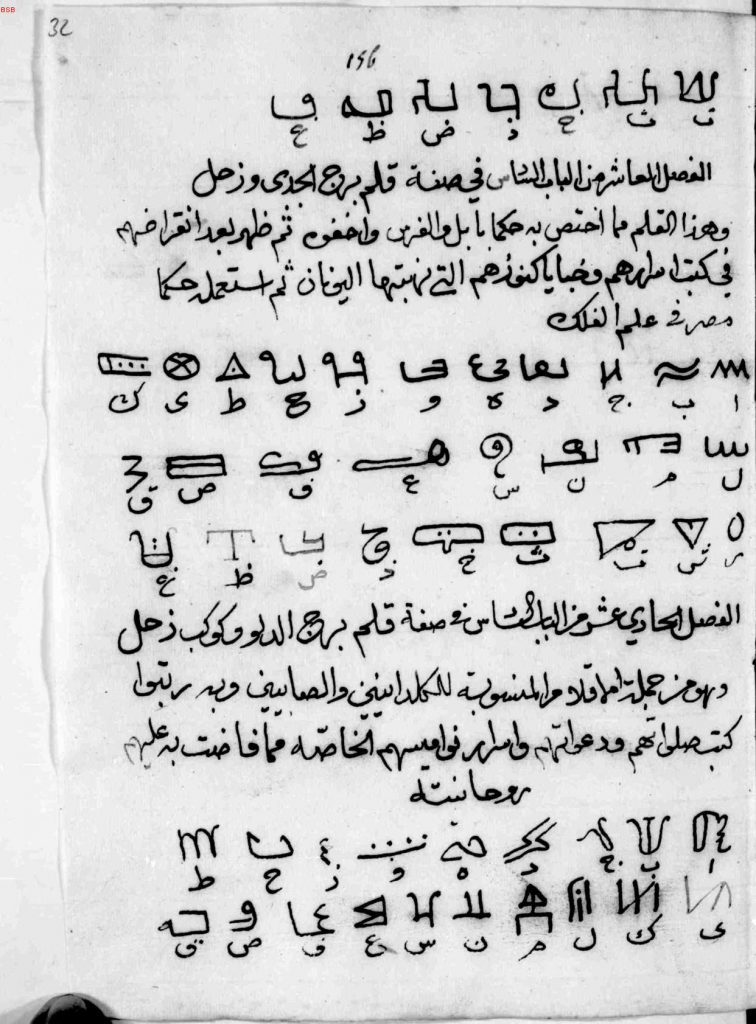 BSB
32
156
ت ث خ ذ ض ظ غ
الفصل العاشر من الباب السادس في صفة قلم برج الجدي وزحل
وهذا القلم مما اختص به حكما بابل والفرس واخفوه ثم ظهر بعد انقراضهم
في كتب اسرارهم وخبايا كنوزهم التي نهبتها اليونان ثم استعمله حكما
مصر في علم الفلك
ا ب ج د ه و ز ح ط ى ك
ل م ن س ع ف ص ق
ر ش ت ث خ ذ ض ظ غ
الفصل الحادي عشر من الباب السادس في صفة قلم برج الدلو وكوكب زحل
وهو من جملة الاقلام المنسوبة للكلدانيين والصابيين وبه رتبوا
كتب صلواتهم ودعواتهم واسرار نواميسهم الخاصه مما فاضت به عليهم
روحانيته
ا ب ج د ه و ز ح ط
ى ك ل م ن س ع ف ص ق